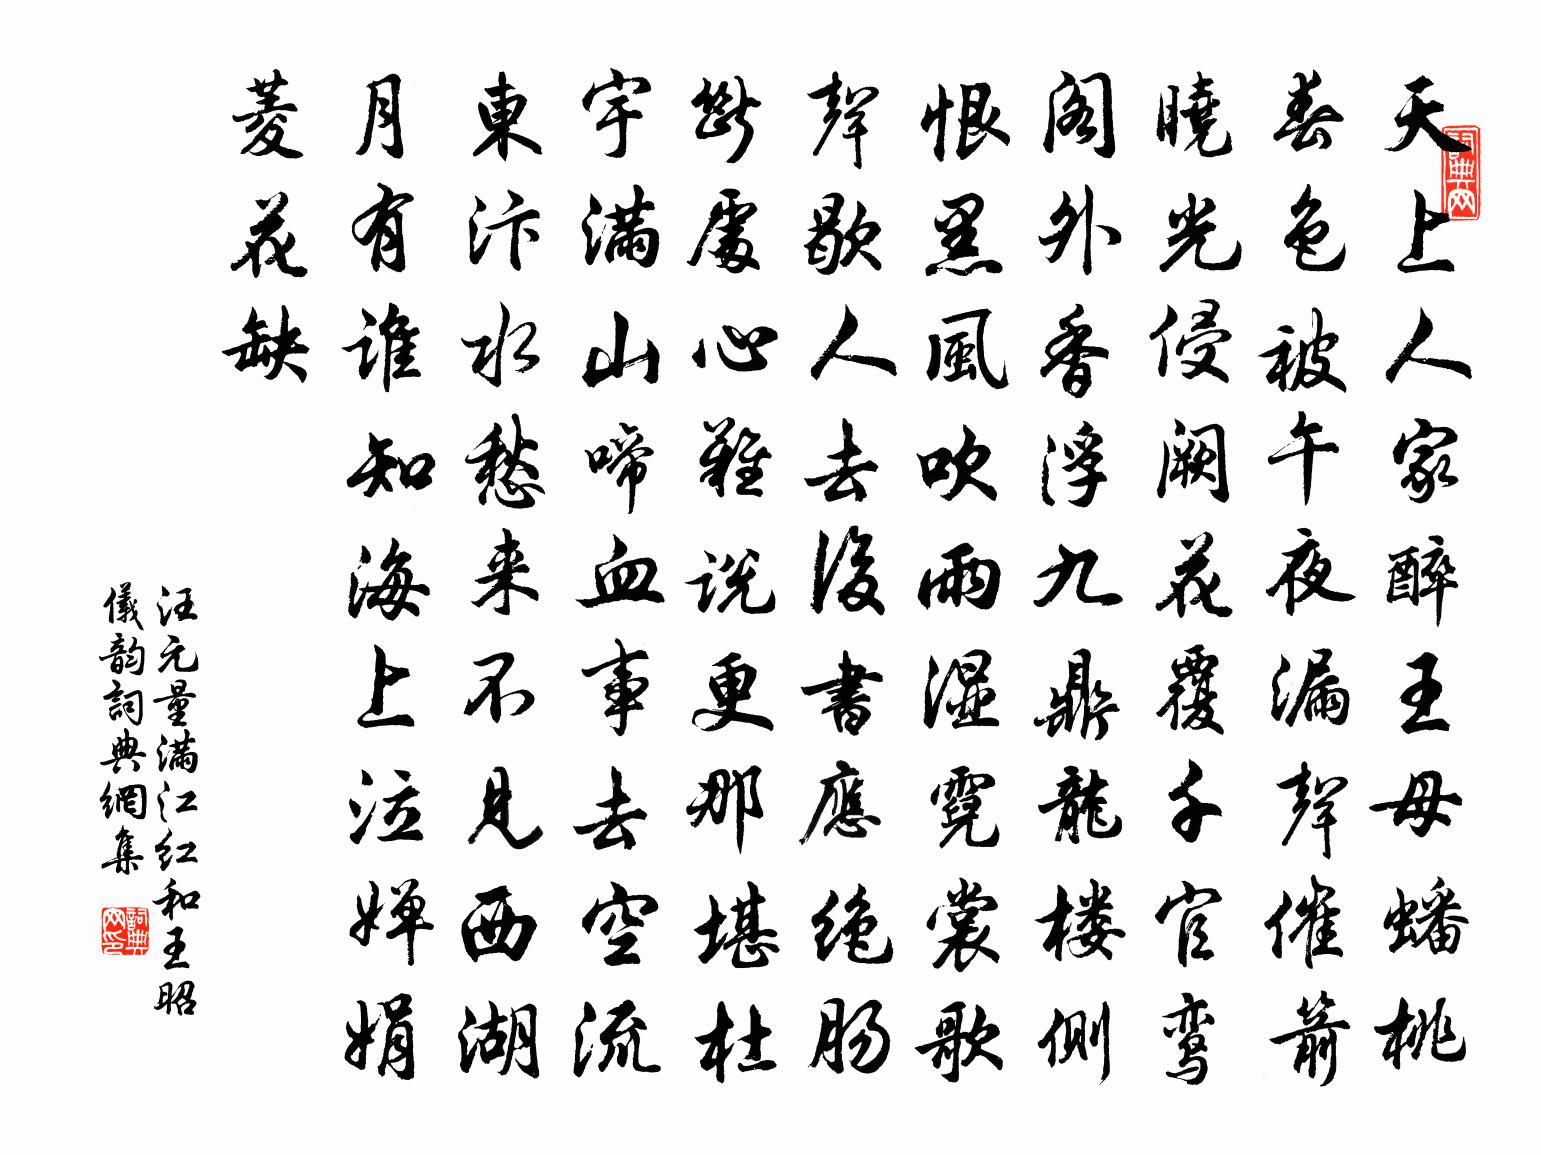 天上人家醉王母蟠桃
春色被午夜漏聲催箭
曉光侵闕花覆千官鸾
阁外香浮九鼎龍楼側
恨黑風吹雨湿霓裳歌
聲歇人去後書應绝肠
斷處心難説更那堪杜
宇满山啼血事去空流
東汴水愁来不見西湖
月有谁知海上泣婵娟
菱花缺
汪元量满江红和王昭
儀韵詞典網集
詞典网
詞典网印